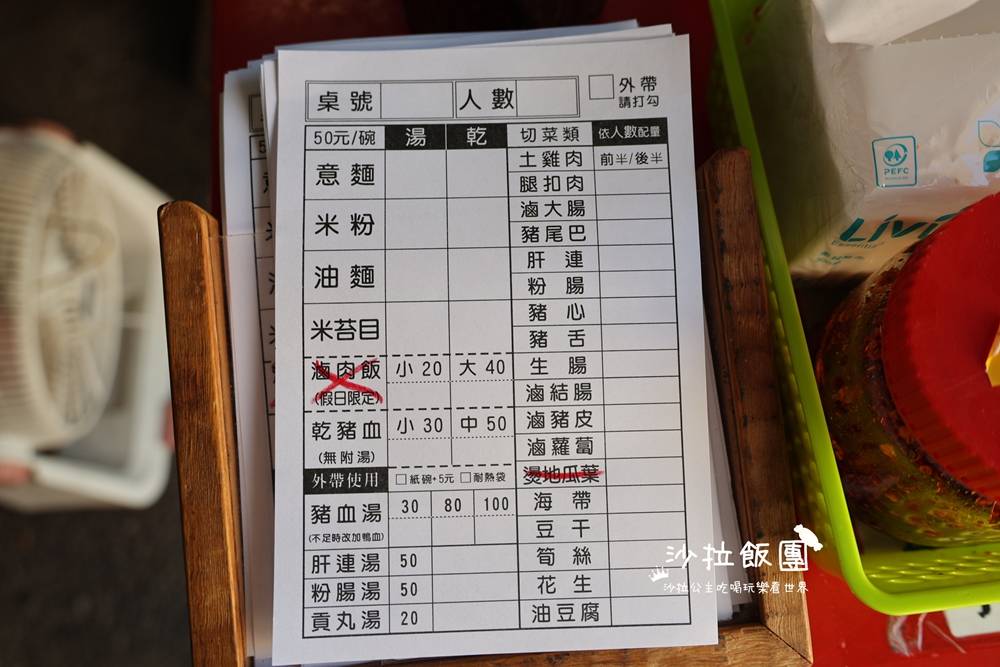 桌號 人數 外帶
請打勾
50元/碗 湯 乾 切菜類 依人數配量
意麵 土雞肉 前半/後半
腿扣肉
米粉 滷大腸
豬尾巴
油麵 肝連
粉腸
米苔目 豬心
豬舌
滷肉飯 小20 大40 生腸
(假日限定) 滷結腸
乾豬血 小30 中50 滷豬皮
(無附湯) 滷蘿蔔
外帶使用 紙碗+5元 耐熱袋 燙地瓜葉
豬血湯 30 80 100 海帶
(不足時改加鴨血) 豆干
肝連湯 50 筍絲
粉腸湯 50 花生
貢丸湯 20 油豆腐
PEFC
Livi
Essentials
沙拉飯團
沙拉公主吃喝玩樂看世界